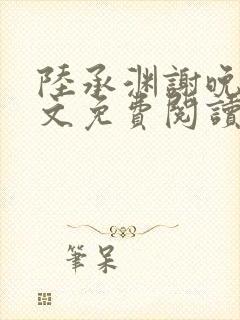 陸承渊謝晚
文免費閱讀
筆呆